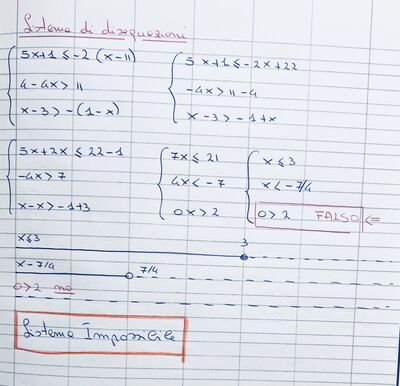 Sistema di disequazioni
5x+1≤-2(x-11)
4-4x>11
x-3>-(1-x)
5x+1≤-2x+22
-4x>11-4
x-3>-1+x
5x+2x≤22-1
-4x>7
x-x>-1+3
7x≤21
4x<-7
0x>2
x≤3
x<-7/4
0>2 FALSO <=
x≤3 3
x-7/4 7/4
0>2 no
Sistema Impossibile